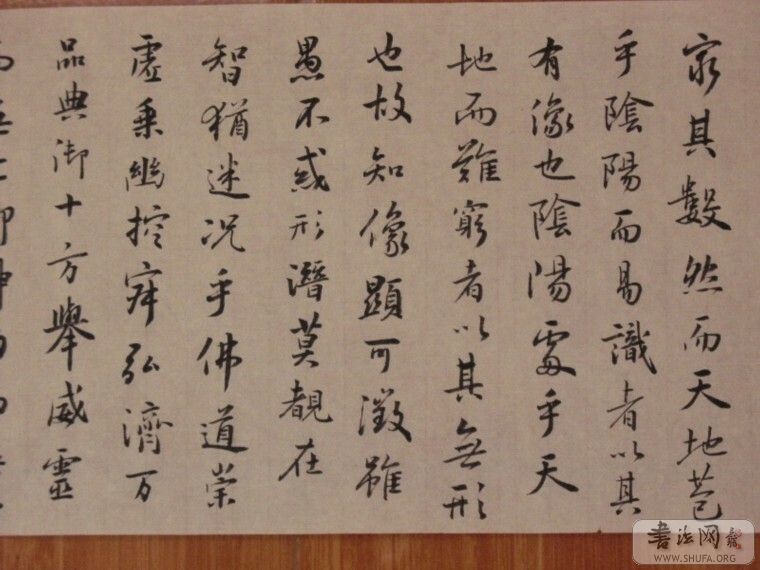 窮其數然而天地苞
乎陰陽而易識者以其
有像也陰陽處乎天
地而難窮者以其無形
也故知像顯可徵雖
愚不惑形潛莫覩在
智猶迷況乎佛道崇
虛乘幽控寂弘濟万
品典御十方舉威靈
書法网
WWW.SHUFA.ORG